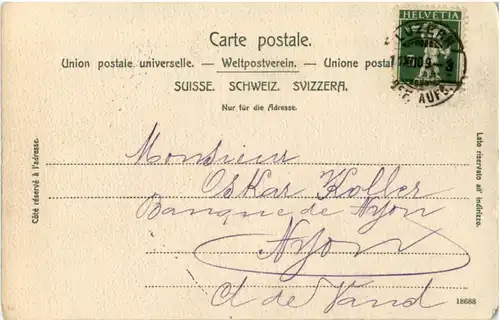 Carte postale.
HELVETIA
LUZERN
Union postale universelle. — Weltpostverein. — Unione postal
SUISSE. SCHWEIZ. SVIZZERA.
Nur für die Adresse.
Côté réservé à l'adresse.
Lato riservato all' indirizzo.
Monsieur
Oskar Koller
Banque de Nyon
Nyon
Ct de Vaud
18688